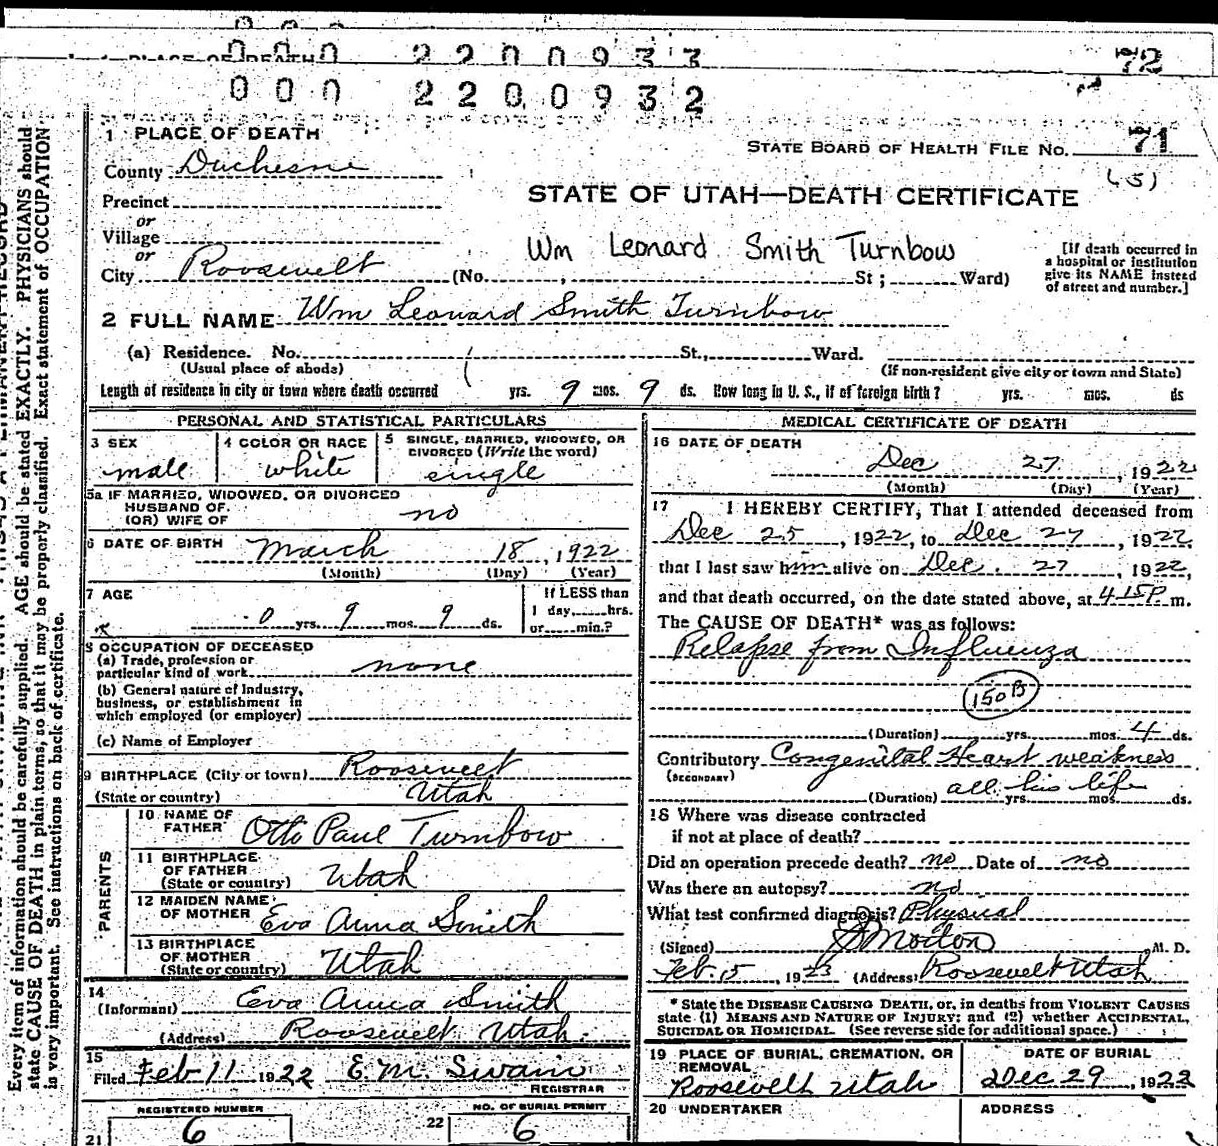 0 0 0 2 2 0 0 9 3 3 72
0 0 0 2 2 0 0 9 3 2
1 PLACE OF DEATH
STATE BOARD OF HEALTH FILE NO. 71
County Duchesne
(5)
STATE OF UTAH—DEATH CERTIFICATE
Precinct
or
Village
or
Wm Leonard Smith Turnbow
City Roosevelt (No. , St; Ward)
[If death occurred in
a hospital or institution
give its NAME instead
of street and number.]
2 FULL NAME Wm Leonard Smith Turnbow
(a) Residence. No. St., Ward.
(Usual place of abode) (If non-resident give city or town and State)
Length of residence in city or town where death occurred yrs. 9 mos. 9 ds. How long in U. S., if of foreign birth? yrs. mos. ds
PERSONAL AND STATISTICAL PARTICULARS
3 SEX
male
4 COLOR OR RACE
white
5 SINGLE, MARRIED, WIDOWED, OR
DIVORCED (Write the word)
single
5a IF MARRIED, WIDOWED, OR DIVORCED
HUSBAND OF
(OR) WIFE OF no
6 DATE OF BIRTH March 18, 1922
(Month) (Day) (Year)
7 AGE
0 yrs. 9 mos. 9 ds.
If LESS than
1 day, hrs.
or min.?
8 OCCUPATION OF DECEASED
(a) Trade, profession or
particular kind of work none
(b) General nature of Industry,
business, or establishment in
which employed (or employer)
(c) Name of Employer
9 BIRTHPLACE (City or town) Roosevelt
(State or country) Utah
PARENTS
10 NAME OF
FATHER Otto Paul Turnbow
11 BIRTHPLACE
OF FATHER
(State or country) Utah
12 MAIDEN NAME
OF MOTHER Eva Anna Smith
13 BIRTHPLACE
OF MOTHER
(State or country) Utah
14
(Informant) Eva Anna Smith
(Address) Roosevelt Utah.
15
Filed Feb 11 1922 E. M. Swain
REGISTRAR
REGISTERED NUMBER
21 6
NO. OF BURIAL PERMIT
22 6
MEDICAL CERTIFICATE OF DEATH
16 DATE OF DEATH
Dec 27, 1922
(Month) (Day) (Year)
17 I HEREBY CERTIFY, That I attended deceased from
Dec 25, 1922, to Dec 27, 1922,
that I last saw him alive on Dec. 27, 1922,
and that death occurred, on the date stated above, at 4 15 P. m.
The CAUSE OF DEATH* was as follows:
Relapse from Influenza
150 B
(Duration) yrs. mos. 4 ds.
Contributory Congenital Heart weakness
(SECONDARY)
(Duration) all his life yrs. mos. ds.
18 Where was disease contracted
if not at place of death?
Did an operation precede death? no Date of no
Was there an autopsy? no
What test confirmed diagnosis? Physical
(Signed) Morton, M. D.
Feb. 15, 1923 (Address) Roosevelt Utah
* State the DISEASE CAUSING DEATH, or, in deaths from VIOLENT CAUSES
state (1) MEANS AND NATURE OF INJURY; and (2) whether ACCIDENTAL,
SUICIDAL OR HOMICIDAL. (See reverse side for additional space.)
19 PLACE OF BURIAL, CREMATION, OR
REMOVAL
Roosevelt Utah
DATE OF BURIAL
Dec 29, 1922
20 UNDERTAKER
ADDRESS
Every item of information should be carefully supplied. AGE should be stated EXACTLY. PHYSICIANS should
state CAUSE OF DEATH in plain terms, so that it may be properly classified. Exact statement of OCCUPATION
is very important. See instructions on back of certificate.